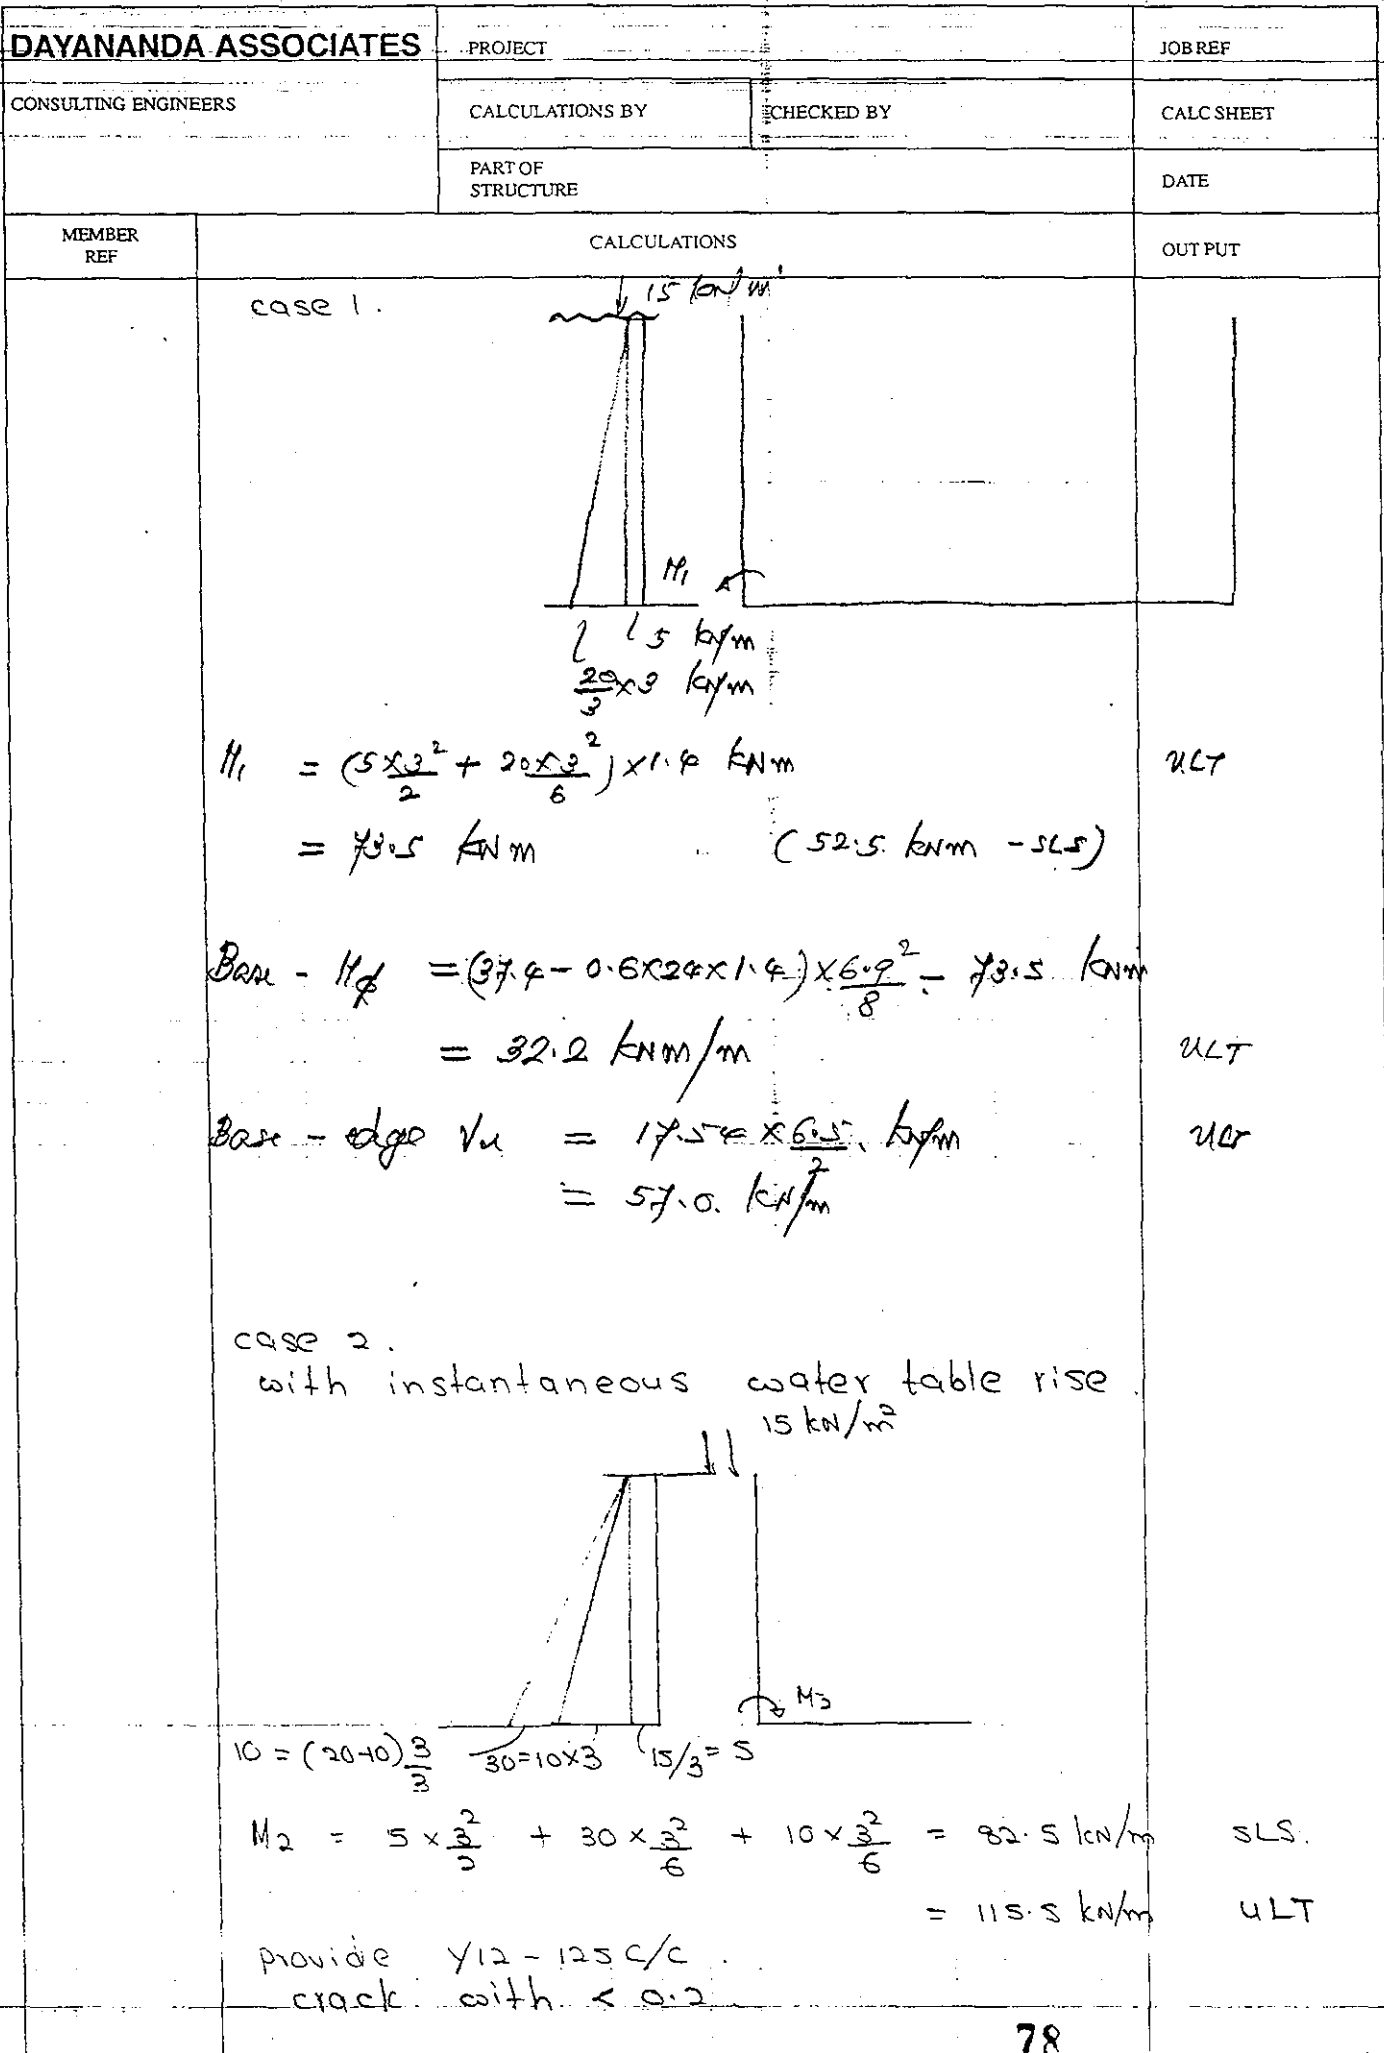 DAYANANDA ASSOCIATES
PROJECT
JOB REF
CONSULTING ENGINEERS
CALCULATIONS BY
CHECKED BY
CALC SHEET
PART OF
STRUCTURE
DATE
MEMBER
REF
CALCULATIONS
OUT PUT
case 1.
15 kN/m
M1
5 kN/m
20/3 x3 kN/m
M1 = (5x3²/2 + 20x3²/6) x1.4 kNm ULT
= 73.5 kNm (52.5 kNm - SLS)
Base - M¢ = (37.4 - 0.6x24x1.4) x 6.9²/8 - 73.5 kNm
= 32.2 kNm/m ULT
Base - edge Vu = 17.54 x 6.5/2 kN/m ULT
= 57.0 kN/m
case 2.
with instantaneous water table rise
15 kN/m²
M2
10 = (20-10) 3/3 30=10x3 15/3 = 5
M2 = 5 x 3²/2 + 30 x 3²/6 + 10 x 3²/6 = 82.5 kN/m SLS.
= 115.5 kN/m ULT
provide Y12 - 125 C/C.
crack with < 0.2
78